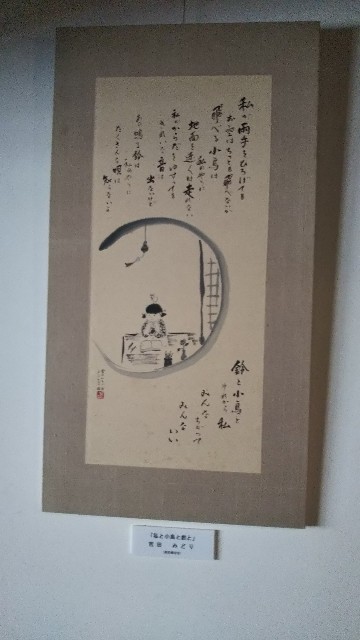 私が両手をひろげても
お空はちっとも飛べないが
飛べる小鳥は
私のやうに
地面を速くは走れない
私がからだをゆすっても
きれいな音は出ないけど
あの鳴る鈴は
私のやうに
たくさんな唄は
知らないよ
鈴と小鳥と
それから私
みんなちがって
みんないい
「私と小鳥と鈴と」
みどり